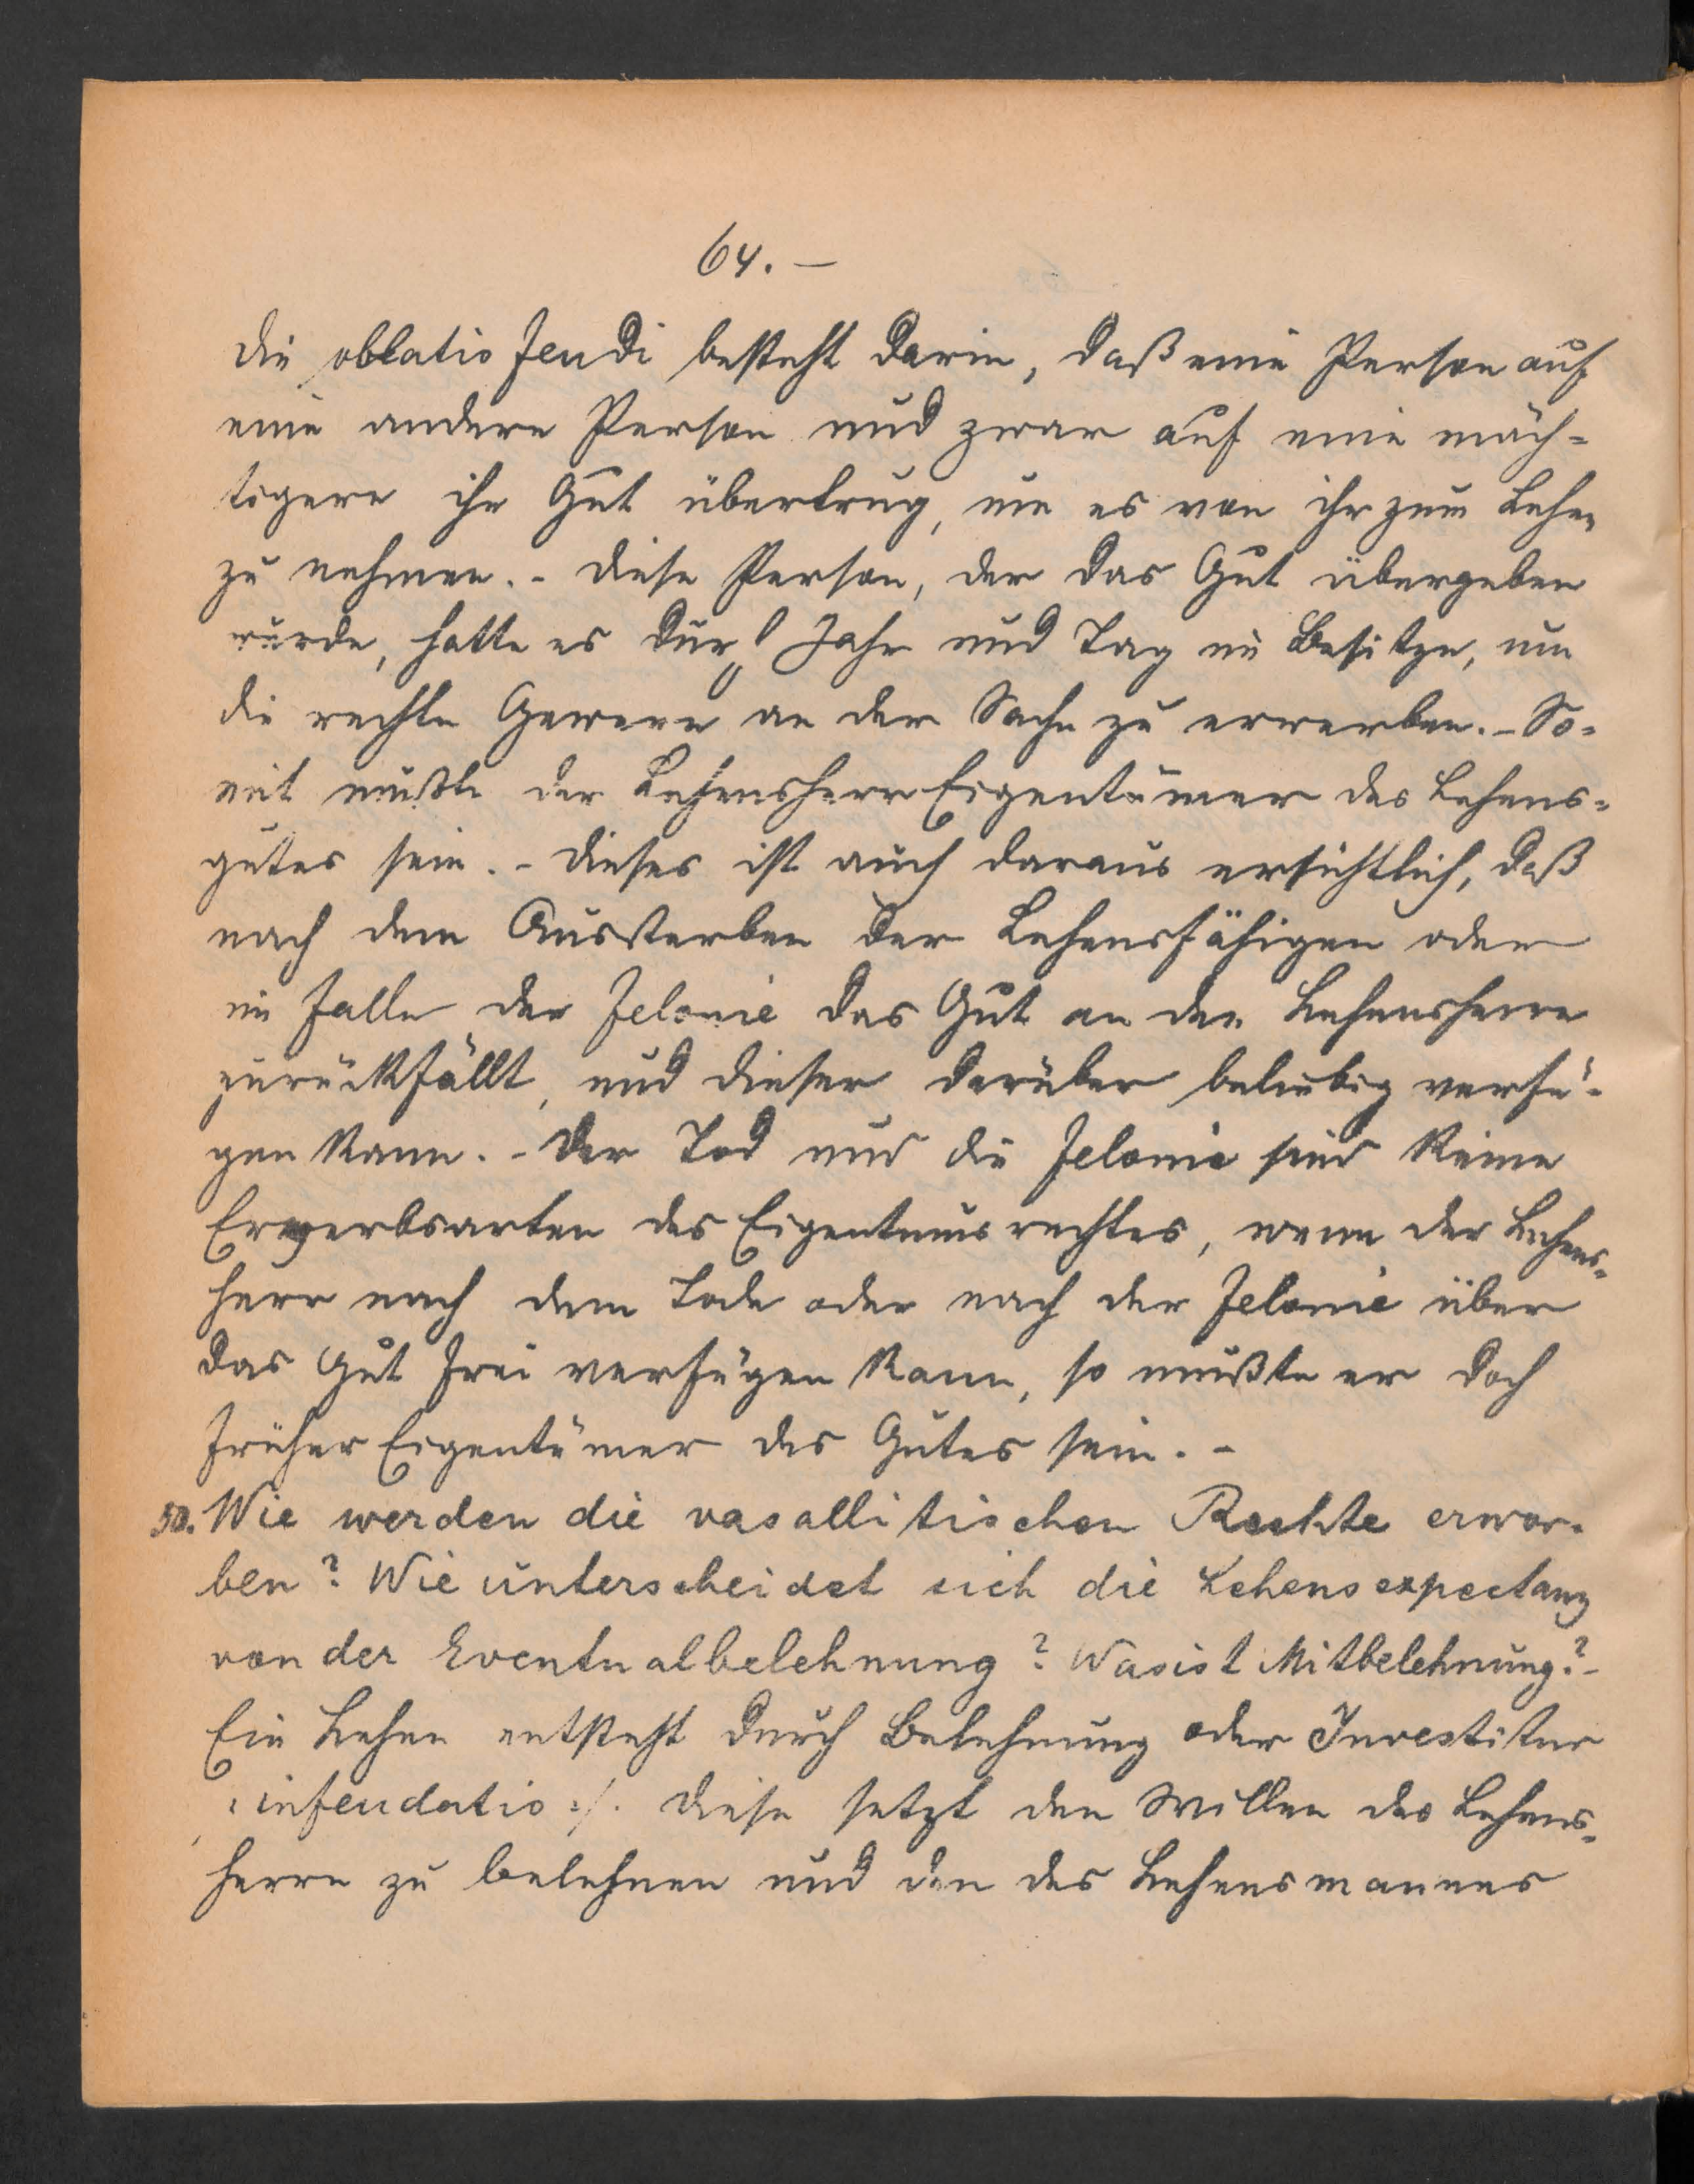 64.–
Die oblatio feudi besteht darin, daß eine Person auf
eine andere Person und zwar auf eine mäch-
tigere ihr Gut übertrug, um es von ihr zum Lehen
zu nehmen. - Diese Person, der das Gut übergeben
wurde, hatte es durch Jahr und Tag im Besitze, um
die rechte Gewere an der Sache zu erwerben. - So-
mit mußte der Lehensherr Eigentümer des Lehens-
gutes sein. - Dieses ist auch daraus ersichtlich, daß
nach dem Aussterben der Lehensfähigen oder
im Falle der Felonie das Gut an den Lehensherrn
zurückfällt, und dieser darüber beliebig verfü-
gen kann. - Der Tod und die Felonie sind keine
Erwerbsarten des Eigentumsrechtes, wenn der Lehens-
herr nach dem Tode oder nach der Felonie über
das Gut frei verfügen kann, so mußte er doch
früher Eigentümer des Gutes sein. -
50. Wie werden die vasallitischen Rechte erwor-
ben? Wie unterscheidet sich die Lehensexpectanz
von der Eventualbelehnung? Was ist Mitbelehnung? -
Ein Lehen entsteht durch Belehnung oder Investitur
: infeudatio :/. Diese setzt den Willen des Lehens-
herrn zu belehnen und den des Lehensmannes